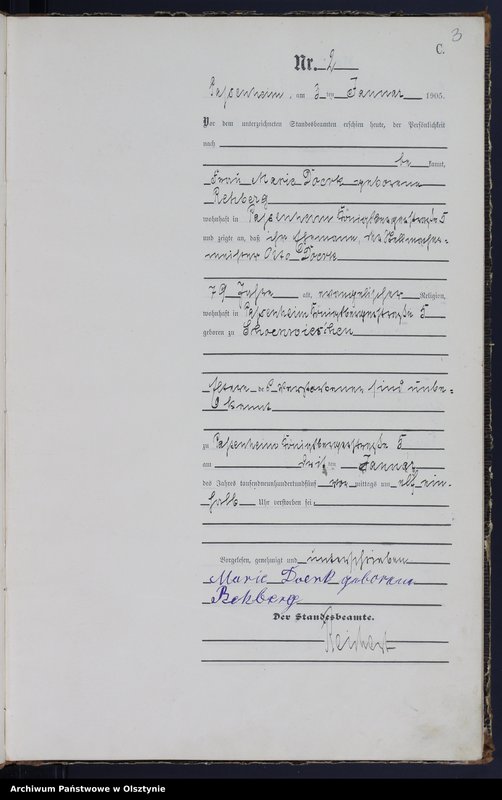 3
C.
Nr. 2
Passenheim, am 3 ten Januar 1905.
Vor dem unterzeichneten Standesbeamten erschien heute, der Persönlichkeit
nach
be kannt,
Frau Marie Doerk geborene
Rehberg
wohnhaft in Passenheim Königsbergerstraße 5
und zeigte an, daß ihr Ehemann, der Stellmacher-
meister Otto Doerk
79 Jahre alt, evangelischer Religion,
wohnhaft in Passenheim Königsbergerstraße 5
geboren zu Schoenwieschen
Eltern des Verstorbenen sind unbe-
kannt
zu Passenheim Königsbergerstraße 5
am drit ten Januar
des Jahres tausendneunhundertundfünf vor mittags um elf ein-
halb Uhr verstorben sei.
Vorgelesen, genehmigt und unterschrieben
Marie Doerk geborene
Rehberg
Der Standesbeamte.
Reichert
Archiwum Państwowe w Olsztynie